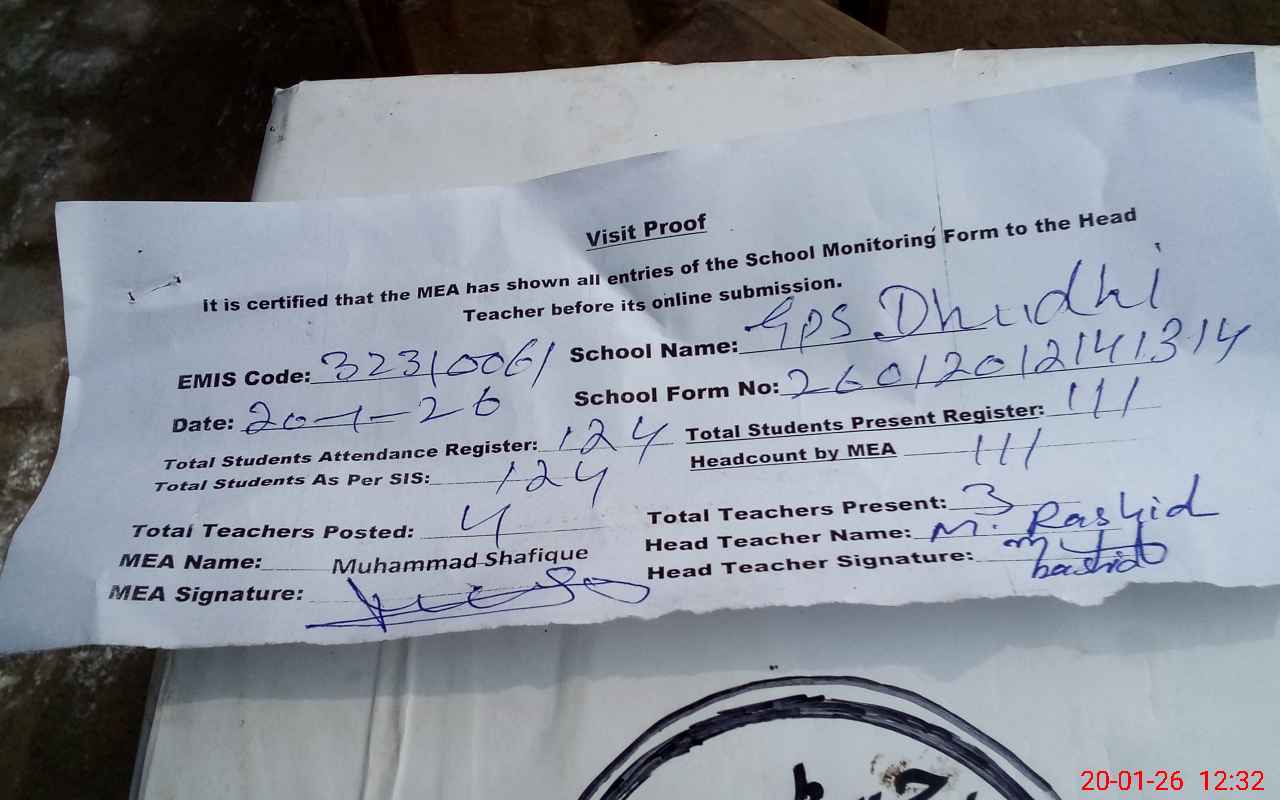 Visit Proof
It is certified that the MEA has shown all entries of the School Monitoring Form to the Head
Teacher before its online submission.
EMIS Code: 32310061 School Name: GPS Dhudhi
Date: 20-1-26 School Form No: 26012012141314
Total Students Attendance Register: 124 Total Students Present Register: 111
Total Students As Per SIS: 124 Headcount by MEA 111
Total Teachers Posted: 4 Total Teachers Present: 3
MEA Name: Muhammad Shafique Head Teacher Name: M. Rashid
MEA Signature: Head Teacher Signature: M Rashid
20-01-26 12:32